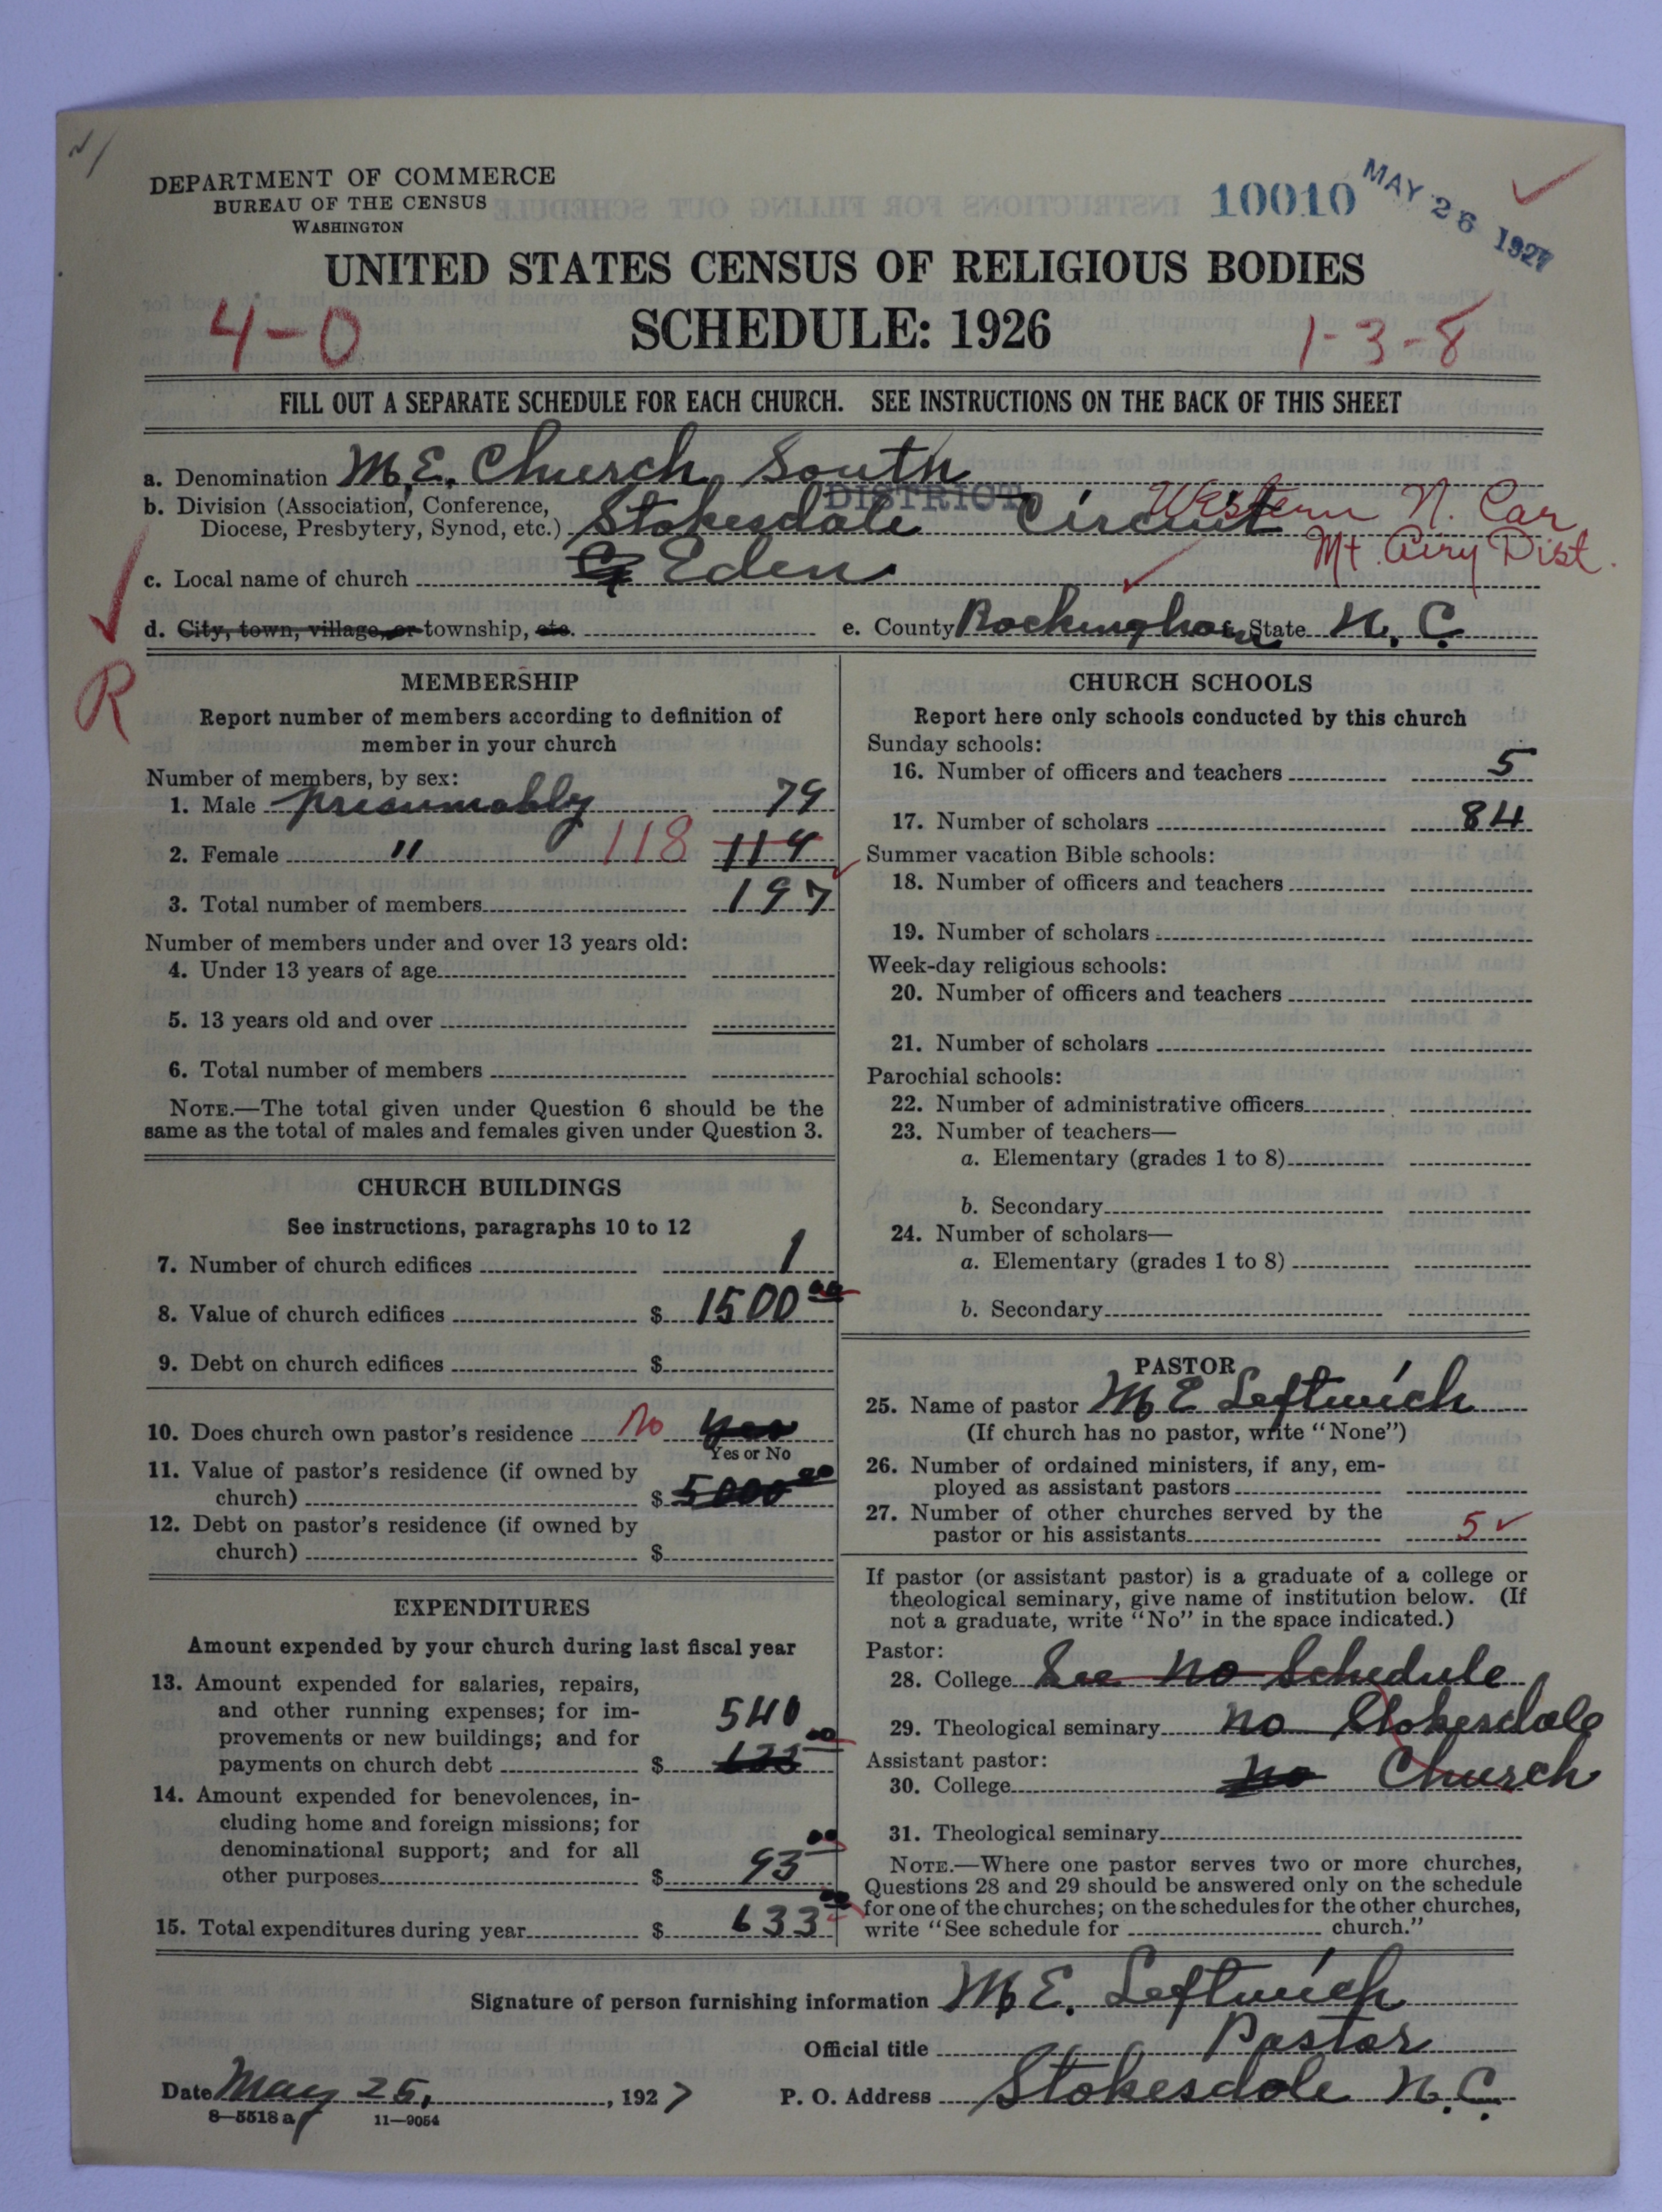 DEPARTMENT OF COMMERCE
BUREAU OF THE CENSUS
WASHINGTON
10010
MAY 26 1927
UNITED STATES CENSUS OF RELIGIOUS BODIES
4-0
SCHEDULE: 1926
1-3-8
FILL OUT A SEPARATE SCHEDULE FOR EACH CHURCH. SEE INSTRUCTIONS ON THE BACK OF THIS SHEET
a. Denomination M.E. Church, South
DISTRICT
b. Division (Association, Conference,
Diocese, Presbytery, Synod, etc.) Stokesdale Circuit Western N. Car
Mt. Airy Dist.
c. Local name of church Eden
d. City, town, village, or township, etc.
e. County Rockingham State N. C.
R
MEMBERSHIP
Report number of members according to definition of
member in your church
Number of members, by sex:
1. Male presumably 79
2. Female " 118 114
3. Total number of members 197
Number of members under and over 13 years old:
4. Under 13 years of age
5. 13 years old and over
6. Total number of members
NOTE.—The total given under Question 6 should be the
same as the total of males and females given under Question 3.
CHURCH BUILDINGS
See instructions, paragraphs 10 to 12
7. Number of church edifices 1
8. Value of church edifices $ 1500 00
9. Debt on church edifices $
10. Does church own pastor's residence No yes
Yes or No
11. Value of pastor's residence (if owned by
church) $ 5000 00
12. Debt on pastor's residence (if owned by
church) $
EXPENDITURES
Amount expended by your church during last fiscal year
13. Amount expended for salaries, repairs,
and other running expenses; for im-
provements or new buildings; and for
payments on church debt $ 540 00
14. Amount expended for benevolences, in-
cluding home and foreign missions; for
denominational support; and for all
other purposes $ 93 00
15. Total expenditures during year $ 633 00
CHURCH SCHOOLS
Report here only schools conducted by this church
Sunday schools:
16. Number of officers and teachers 5
17. Number of scholars 84
Summer vacation Bible schools:
18. Number of officers and teachers
19. Number of scholars
Week-day religious schools:
20. Number of officers and teachers
21. Number of scholars
Parochial schools:
22. Number of administrative officers
23. Number of teachers—
a. Elementary (grades 1 to 8)
b. Secondary
24. Number of scholars—
a. Elementary (grades 1 to 8)
b. Secondary
PASTOR
25. Name of pastor M E Leftwich
(If church has no pastor, write "None")
26. Number of ordained ministers, if any, em-
ployed as assistant pastors
27. Number of other churches served by the
pastor or his assistants 5
If pastor (or assistant pastor) is a graduate of a college or
theological seminary, give name of institution below. (If
not a graduate, write "No" in the space indicated.)
Pastor:
28. College See no Schedule
29. Theological seminary no Stokesdale
Assistant pastor:
30. College no Church
31. Theological seminary
NOTE.—Where one pastor serves two or more churches,
Questions 28 and 29 should be answered only on the schedule
for one of the churches; on the schedules for the other churches,
write "See schedule for church."
Signature of person furnishing information M.E. Leftwich
Official title Pastor
Date May 25, 1927
P. O. Address Stokesdale N.C.
8—5518 a
11—9054